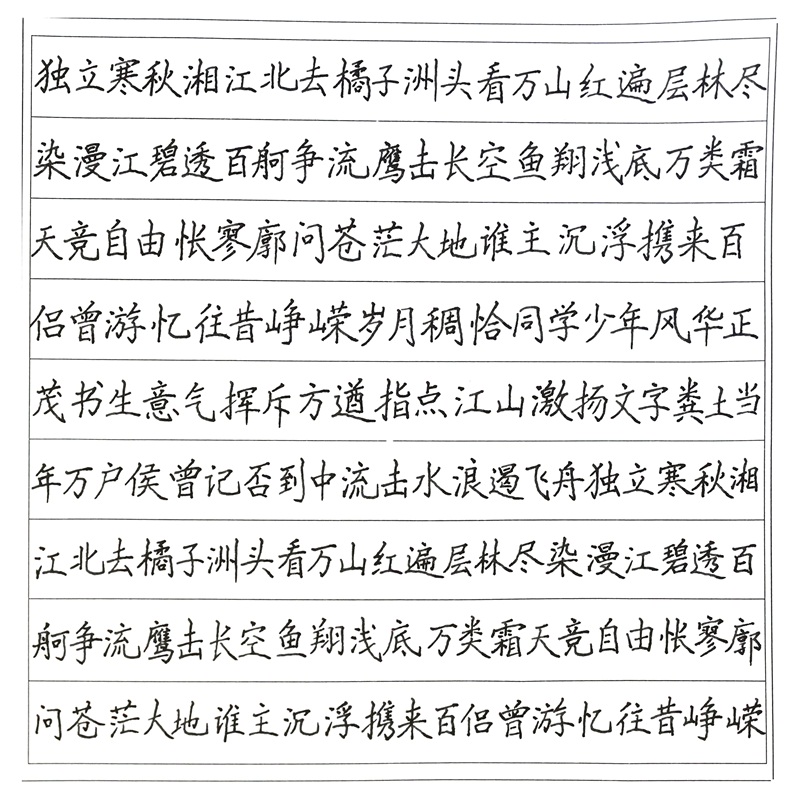 独立寒秋湘江北去橘子洲头看万山红遍层林尽
染漫江碧透百舸争流鹰击长空鱼翔浅底万类霜
天竞自由怅寥廓问苍茫大地谁主沉浮携来百
侣曾游忆往昔峥嵘岁月稠恰同学少年风华正
茂书生意气挥斥方遒指点江山激扬文字粪土当
年万户侯曾记否到中流击水浪遏飞舟独立寒秋湘
江北去橘子洲头看万山红遍层林尽染漫江碧透百
舸争流鹰击长空鱼翔浅底万类霜天竞自由怅寥廓
问苍茫大地谁主沉浮携来百侣曾游忆往昔峥嵘